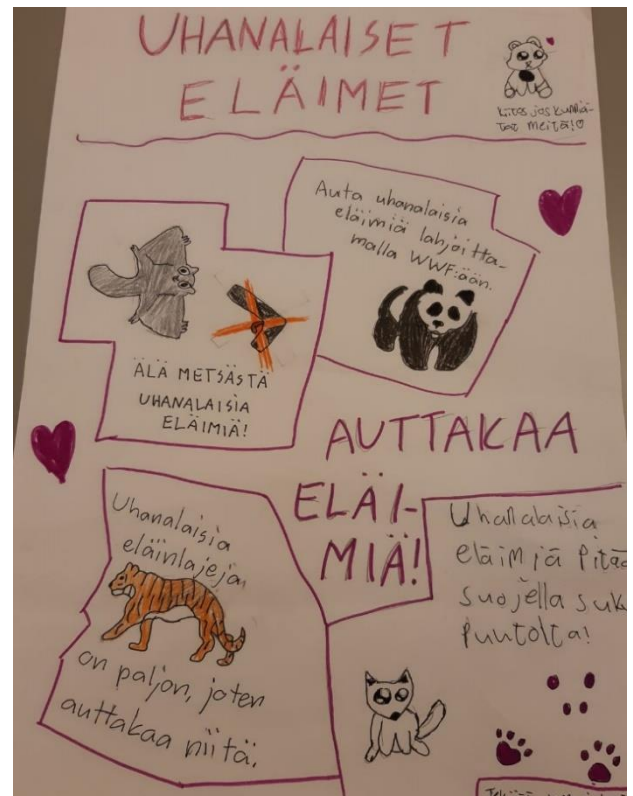 UHANALAISET
ELÄIMET
kiitos jos kunnioi-
tat meitä!
Auta uhanalaisia
eläimiä lahjoitta-
malla WWF:ään.
ÄLÄ METSÄSTÄ
UHANALAISIA
ELÄIMIÄ!
AUTTAKAA
ELÄI-
MIÄ!
Uhanalaisia
eläinlajeja
on paljon, joten
auttakaa niitä.
Uhanalaisia
eläimiä pitää
suojella suk
puutolta!